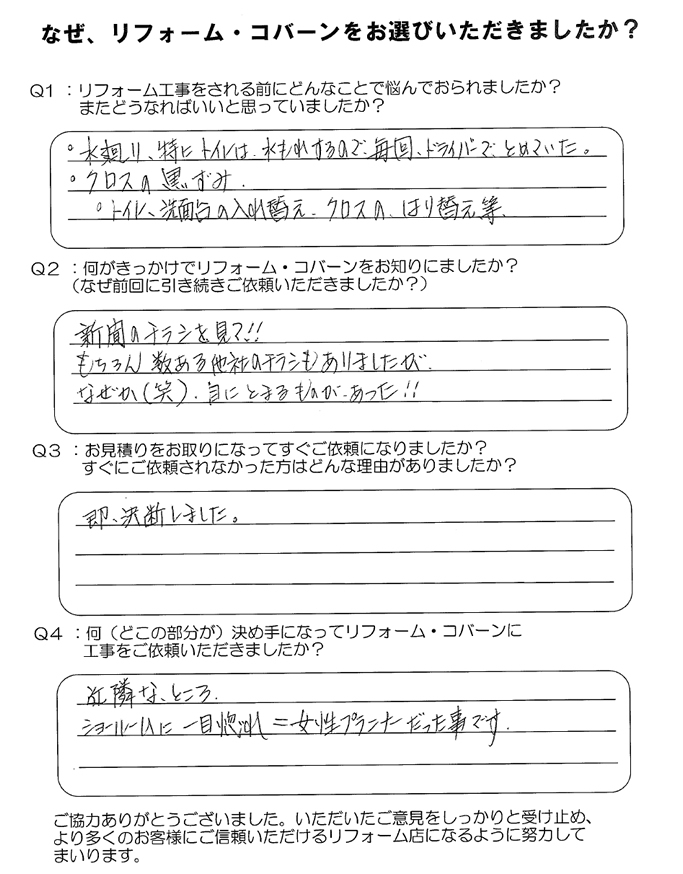 なぜ、リフォーム・コバーンをお選びいただきましたか？
Q1 ：リフォーム工事をされる前にどんなことで悩んでおられましたか？
またどうなればいいと思っていましたか？
○水廻り、特にトイレは、水もれするので、毎回、ドライバーで、とめていた。
○クロスの黒ずみ、
○トイレ、洗面台の入れ替え、クロスの、はり替え等、
Q2 ：何がきっかけでリフォーム・コバーンをお知りにましたか？
（なぜ前回に引き続きご依頼いただきましたか？）
新聞のチラシを見て!!
もちろん数ある他社のチラシもありましたが、
なぜか(笑)、目にとまるものが、あった!!
Q3 ：お見積りをお取りになってすぐご依頼になりましたか？
すぐにご依頼されなかった方はどんな理由がありましたか？
即、決断しました。
Q4 ：何（どこの部分が）決め手になってリフォーム・コバーンに
工事をご依頼いただきましたか？
近隣な、ところ、
ショールームに一目惚れ＝女性プランナーだった事です、
ご協力ありがとうございました。いただいたご意見をしっかりと受け止め、
より多くのお客様にご信頼いただけるリフォーム店になるように努力して
まいります。